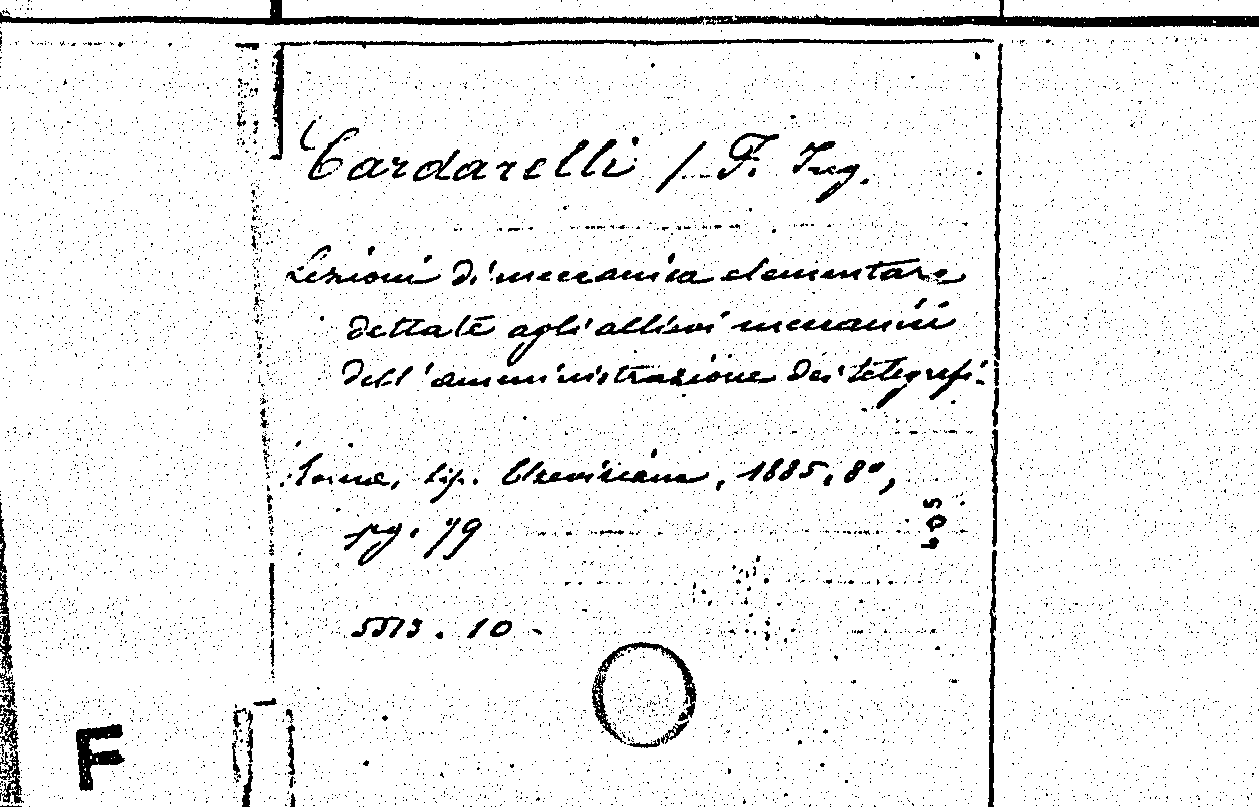 Cardarelli / F. Ing.
Lezioni di meccanica elementare
dettate agli allievi meccanici
dell'amministrazione dei telegrafi.
Roma, tip. 1885, 8°,
pg. 79
405
5513.10-
F